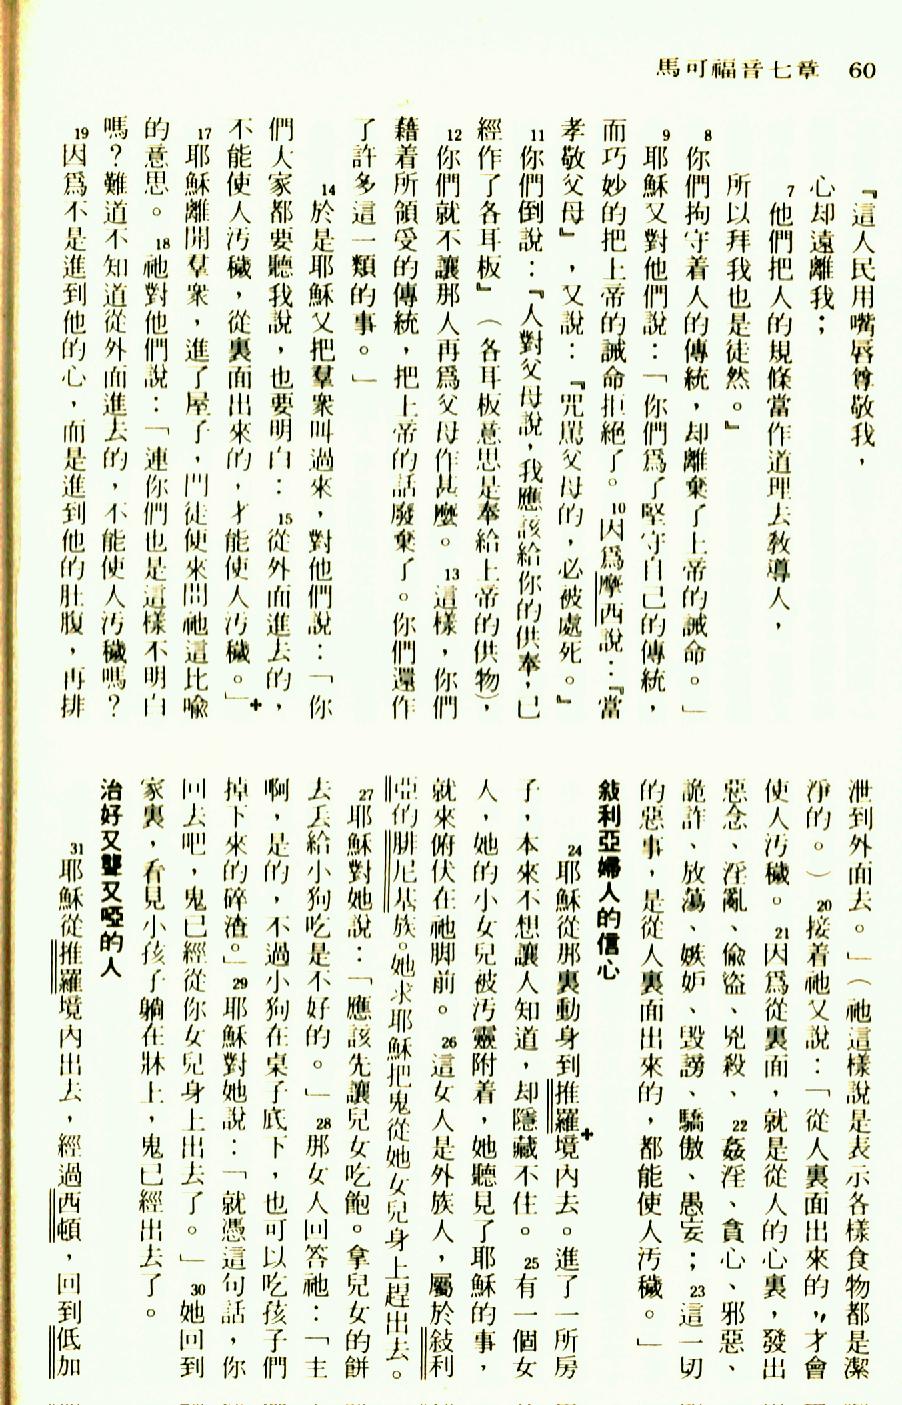 馬可福音七章 60
『這人民用嘴唇尊敬我，
心却遠離我；
7他們把人的規條當作道理去敎導人，
所以拜我也是徒然。』
8你們拘守着人的傳統，却離棄了上帝的誡命。」
9耶穌又對他們說：「你們爲了堅守自己的傳統，
而巧妙的把上帝的誡命拒絕了。10因爲摩西說：『當
孝敬父母』，又說：『咒駡父母的，必被處死。』
11你們倒說：『人對父母說，我應該給你的供奉，已
經作了各耳板』（各耳板意思是奉給上帝的供物），
12你們就不讓那人再爲父母作甚麼。13這樣，你們
藉着所領受的傳統，把上帝的話廢棄了。你們還作
了許多這一類的事。」
14於是耶穌又把羣衆叫過來，對他們說：「你
們大家都要聽我說，也要明白：15從外面進去的，
不能使人汚穢，從裏面出來的，才能使人汚穢。」+
17耶穌離開羣衆，進了屋子，門徒便來問祂這比喩
的意思。18祂對他們說：「連你們也是這樣不明白
嗎？難道不知道從外面進去的，不能使人汚穢嗎？
19因爲不是進到他的心，而是進到他的肚腹，再排
泄到外面去。」（祂這樣說是表示各樣食物都是潔
淨的。）20接着祂又說：「從人裏面出來的，才會
使人汚穢。21因爲從裏面，就是從人的心裏，發出
惡念、淫亂、偷盜、兇殺、22姦淫、貪心、邪惡、
詭詐、放蕩、嫉妒、毀謗、驕傲、愚妄；23這一切
的惡事，是從人裏面出來的，都能使人汚穢。」
敍利亞婦人的信心
24耶穌從那裏動身到推羅+境內去。進了一所房
子，本來不想讓人知道，却隱藏不住。25有一個女
人，她的小女兒被汚靈附着，她聽見了耶穌的事，
就來俯伏在祂脚前。26這女人是外族人，屬於敍利
亞的腓尼基族。她求耶穌把鬼從她女兒身上趕出去。
27耶穌對她說：「應該先讓兒女吃飽。拿兒女的餅
去丟給小狗吃是不好的。」28那女人回答祂：「主
啊，是的，不過小狗在桌子底下，也可以吃孩子們
掉下來的碎渣。」29耶穌對她說：「就憑這句話，你
回去吧，鬼已經從你女兒身上出去了。」30她回到
家裏，看見小孩子躺在牀上，鬼已經出去了。
治好又聾又啞的人
31耶穌從推羅境內出去，經過西頓，回到低加